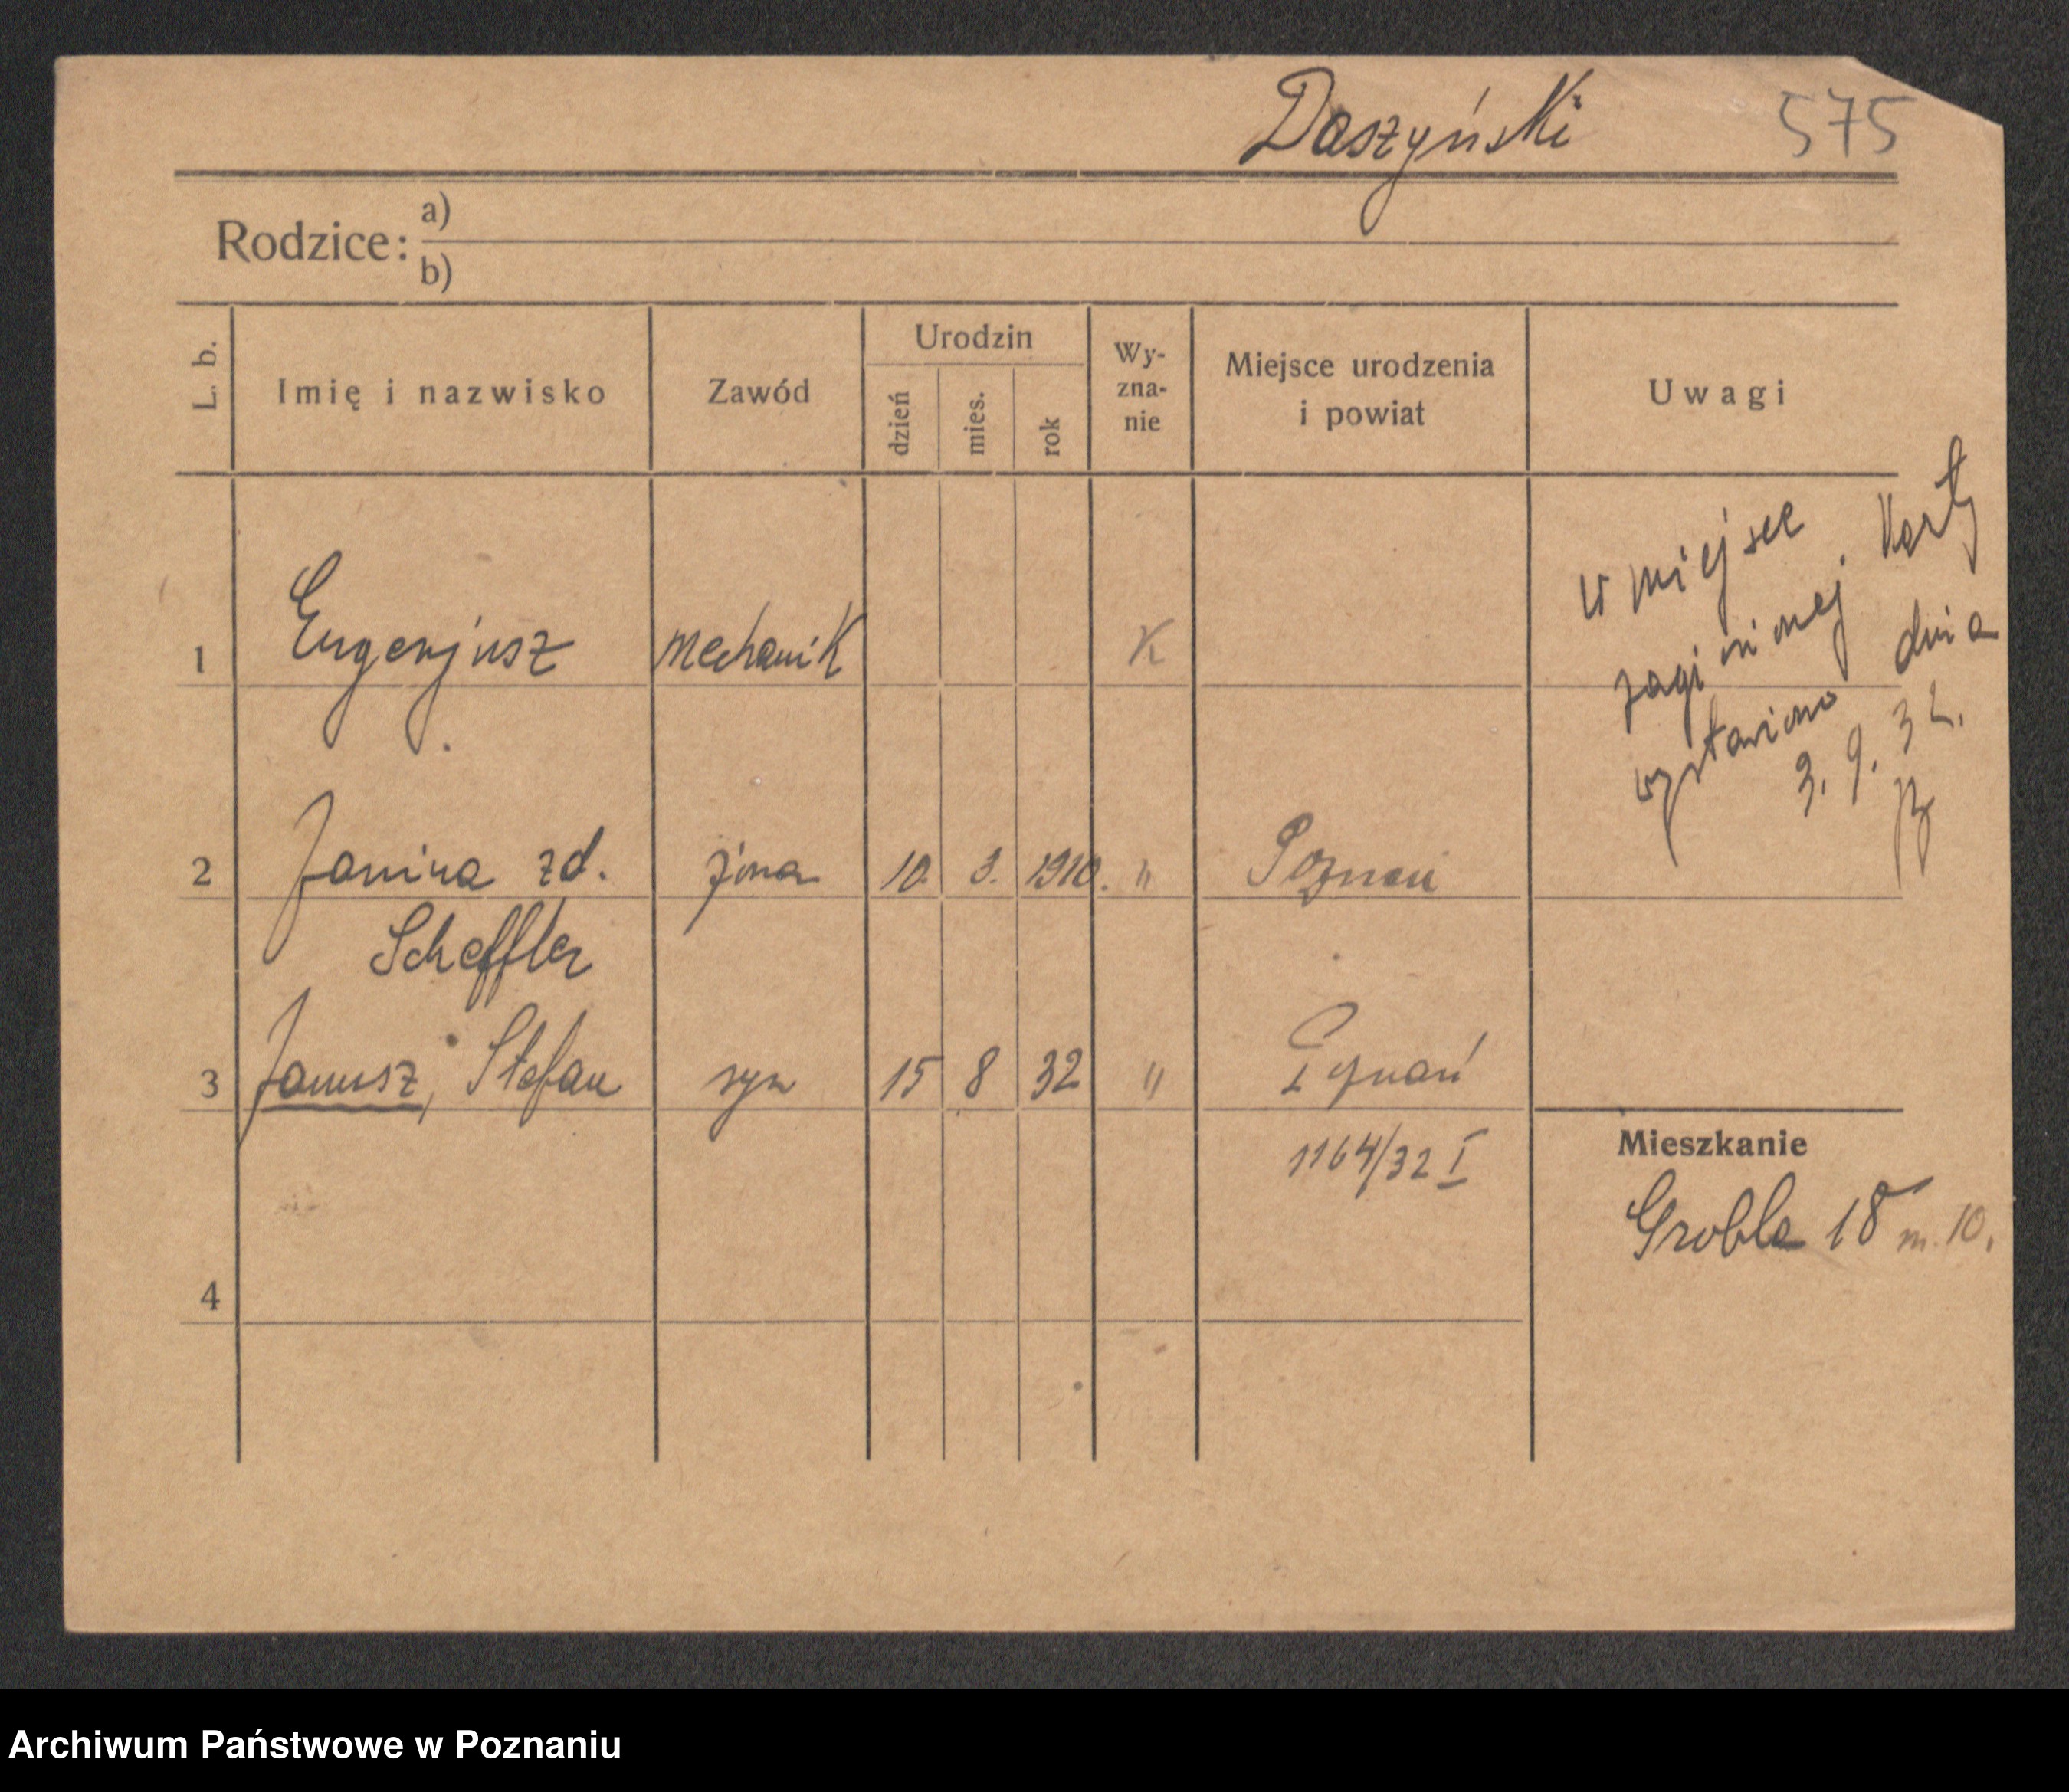 Daszyński 575
Rodzice: a)
b)
L. b. Imię i nazwisko Zawód Urodzin dzień mies. rok Wy-zna-nie Miejsce urodzenia i powiat Uwagi
1 Eugenjusz mechanik K
w miejsce
zaginionej karty
wystawiono dnia
3. 9. 32.
2 Janina zd. żona 10. 3. 1910. " Poznań
Scheffler
3 Janusz, Stefan syn 15 8 32 " Poznań
1164/32 I
Mieszkanie
Grobla 18 m. 10.
4
Archiwum Państwowe w Poznaniu